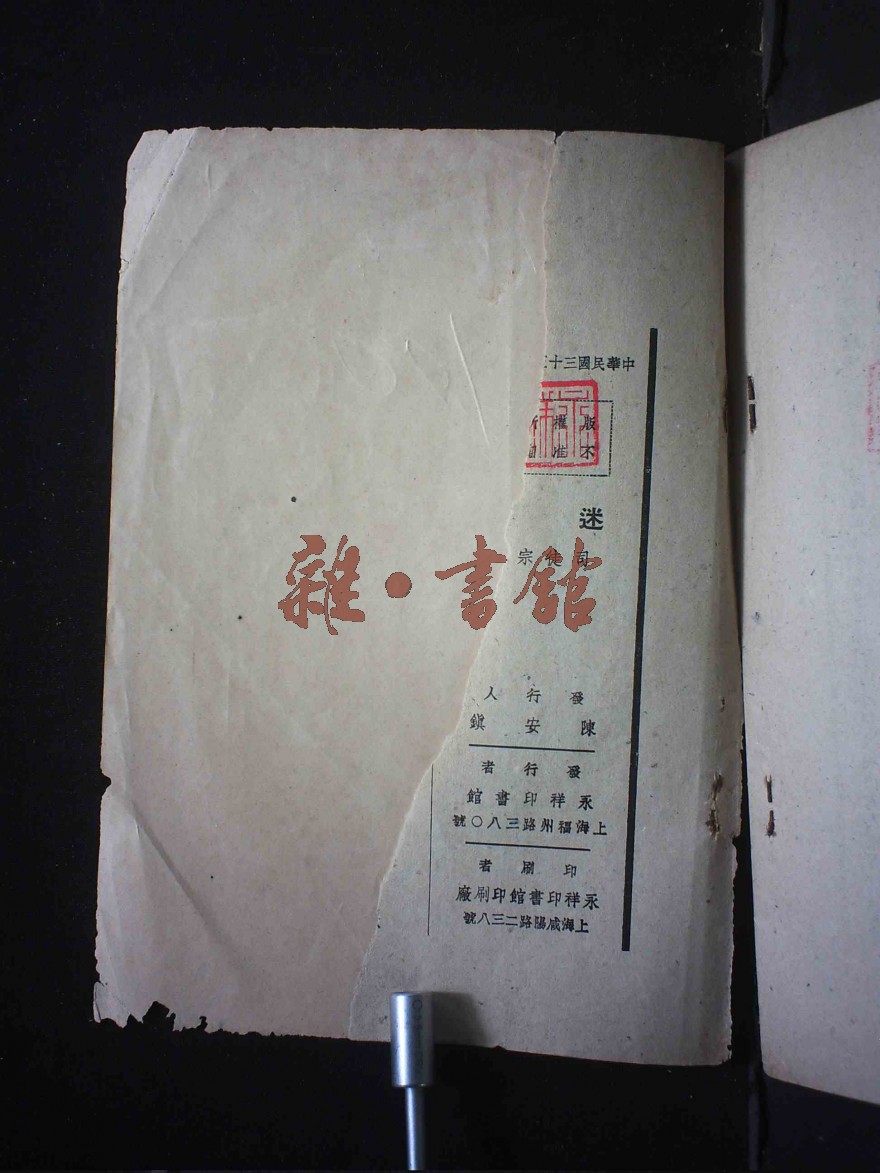 中華民國三十
版權
不准
迷
司徒宗
發行人
陳安鎮
發行者
永祥印書館
上海福州路三八〇號
印刷者
永祥印書館印刷廠
上海咸陽路二三八號
雜·書館